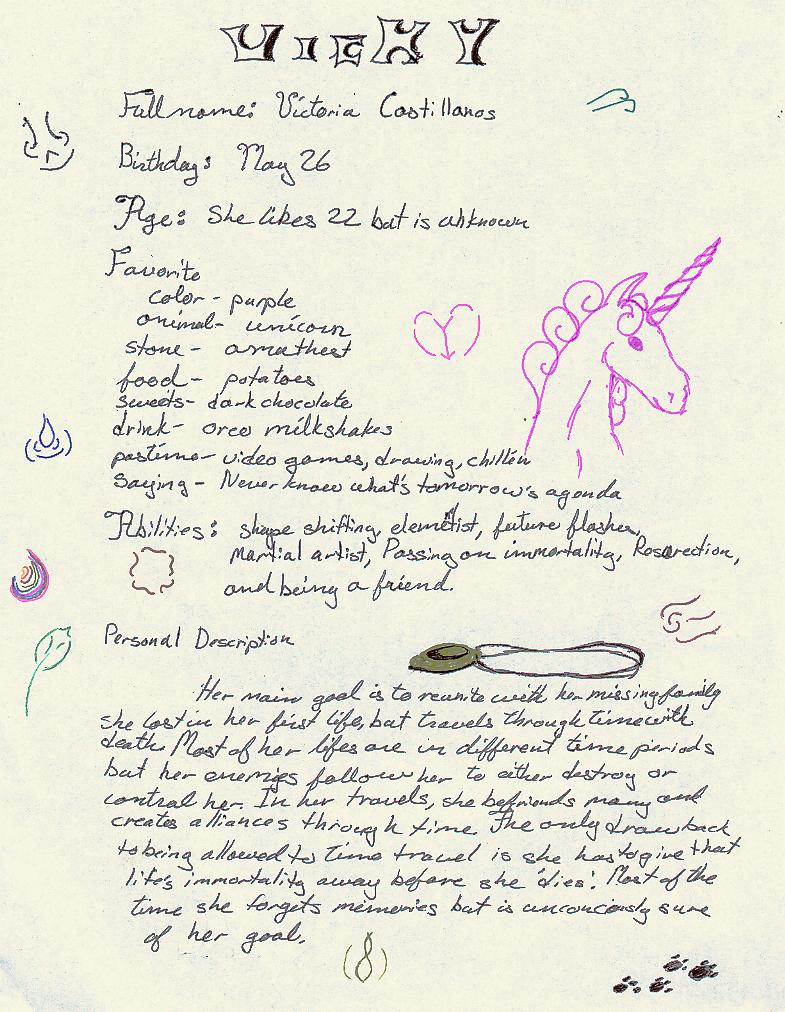 VICKY
Full name: Victoria Castillanos
Birthday: May 26
Age: She likes 22 but is unknown
Favorite
color - purple
animal - unicorn
stone - amathest
food - potatoes
sweets - dark chocolate
drink - oreo milkshakes
pastime - video games, drawing, chillen
Saying - Never know what's tomorrow's agenda
Abilities: shape shifting, elemetist, future flashes,
martial artist, Passing on immortality, Resorection,
and being a friend.
Personal Description
Her main goal is to reunite with her missing family
she lost in her first life, but travels through time with
death. Most of her lifes are in different time periods
but her enemies follow her to either destroy or
control her. In her travels, she befriends many and
creates alliances through time. The only drawback
to being allowed to time travel is she has to give that
life's immortality away before she 'dies'. Most of the
time she forgets memories but is unconciously sure
of her goal.